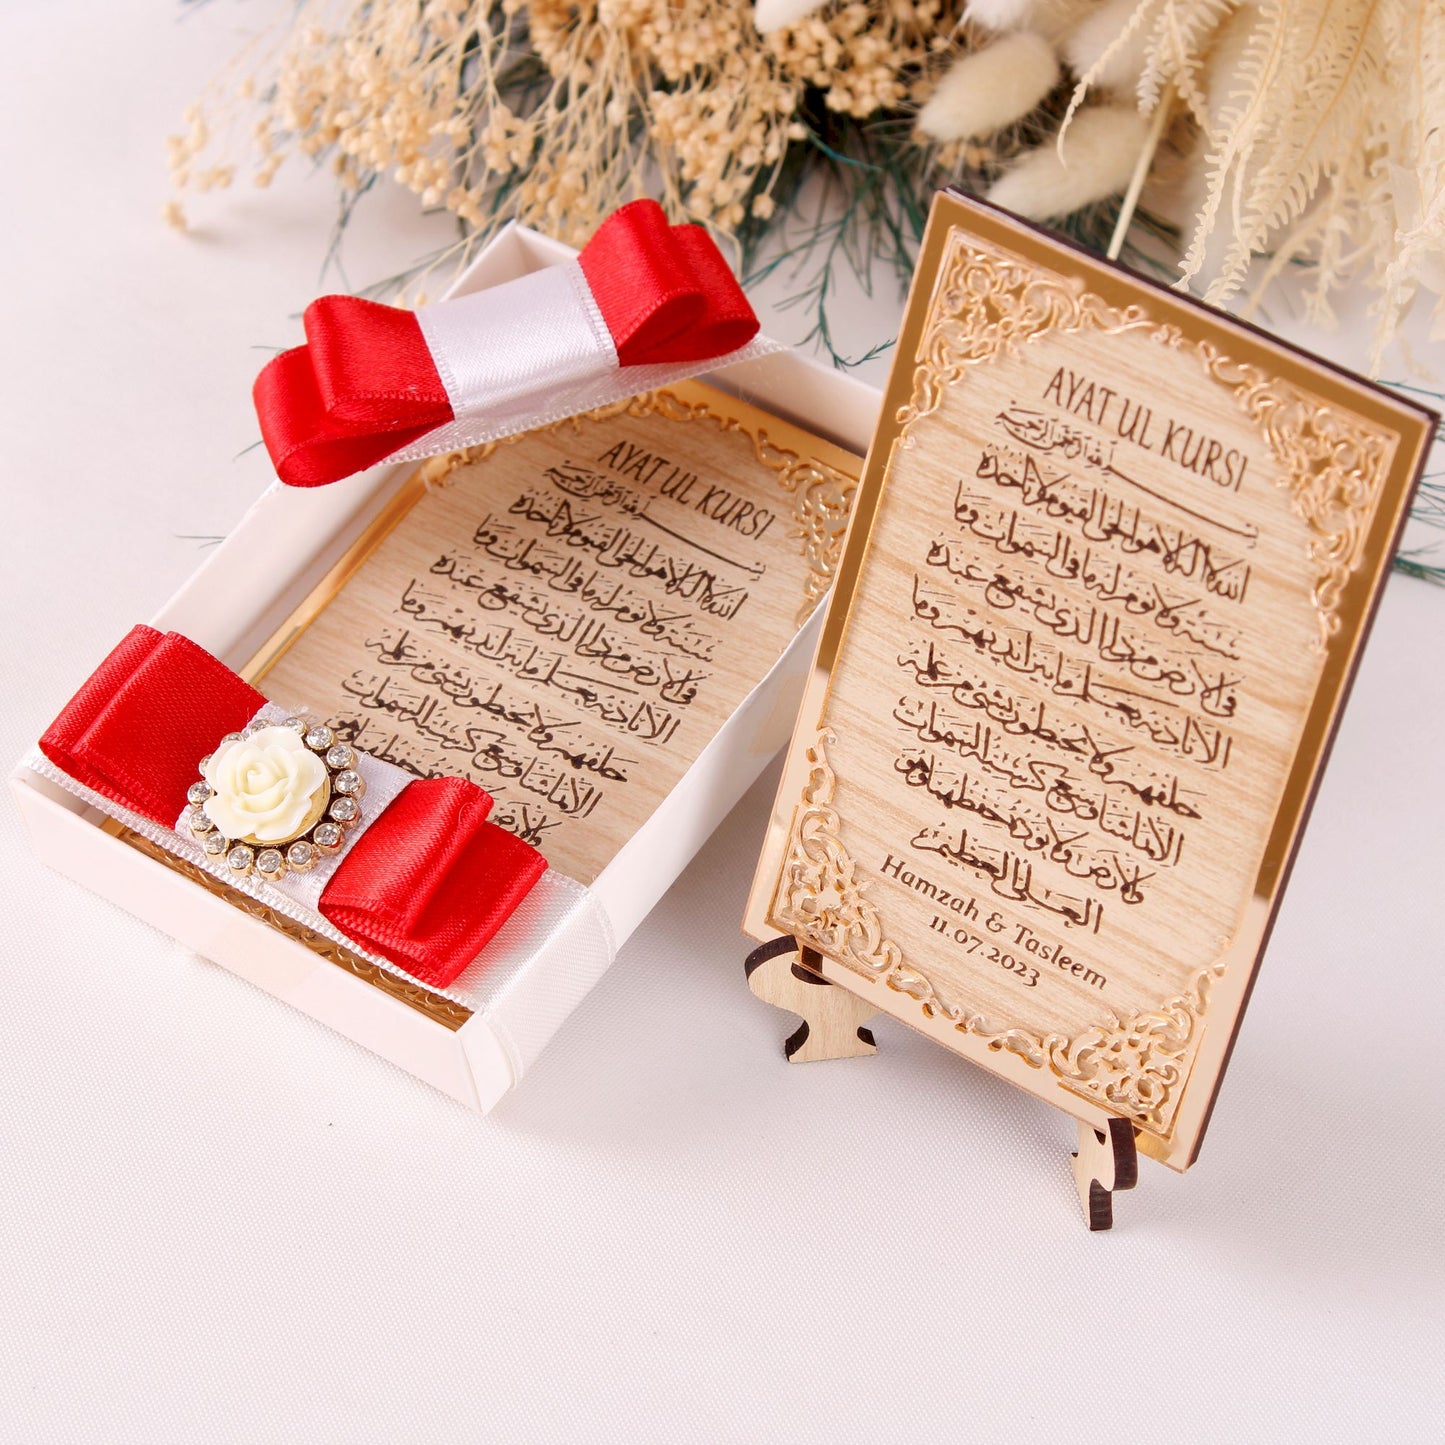 AYAT UL KURSI
بسم الله الرحمن الرحيم
الله لا اله الا هو الحي القيوم لا تأخذه
سنة ولا نوم له ما في السموات وما
في الارض من ذا الذي يشفع عنده
الا باذنه يعلم ما بين ايديهم وما
خلفهم ولا يحيطون بشئ من علمه
الا بما شاء وسع كرسيه السموات
والارض ولا يؤده حفظهما وهو
العلي العظيم
Hamzah & Tasleem
11.07.2023
AYAT UL KURSI
بسم الله الرحمن الرحيم
الله لا اله الا هو الحي القيوم لا تأخذه
سنة ولا نوم له ما في السموات وما
في الارض من ذا الذي يشفع عنده
الا باذنه يعلم ما بين ايديهم وما
خلفهم ولا يحيطون بشئ من علمه
الا بما شاء وسع كرسيه السموات
والارض حفظهما وهو